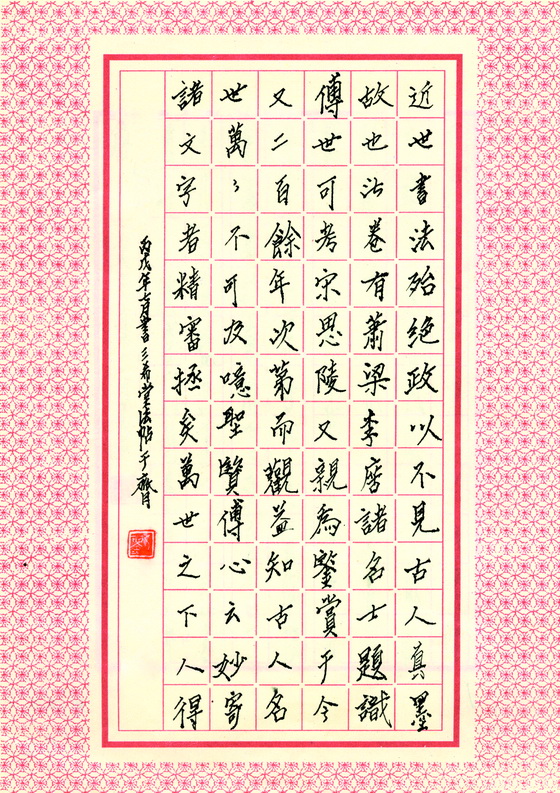 近世書法殆絶政以不見古人真墨
故也此卷有蕭梁李唐諸名士題識
傳世可考宋思陵又親為鑒賞于今
又二百餘年次第而觀益知古人名
世萬〻不可及噫聖賢傳心云妙寄
諸文字者精審拯矣萬世之下人得
丙戌年七月書三希堂法帖于齋